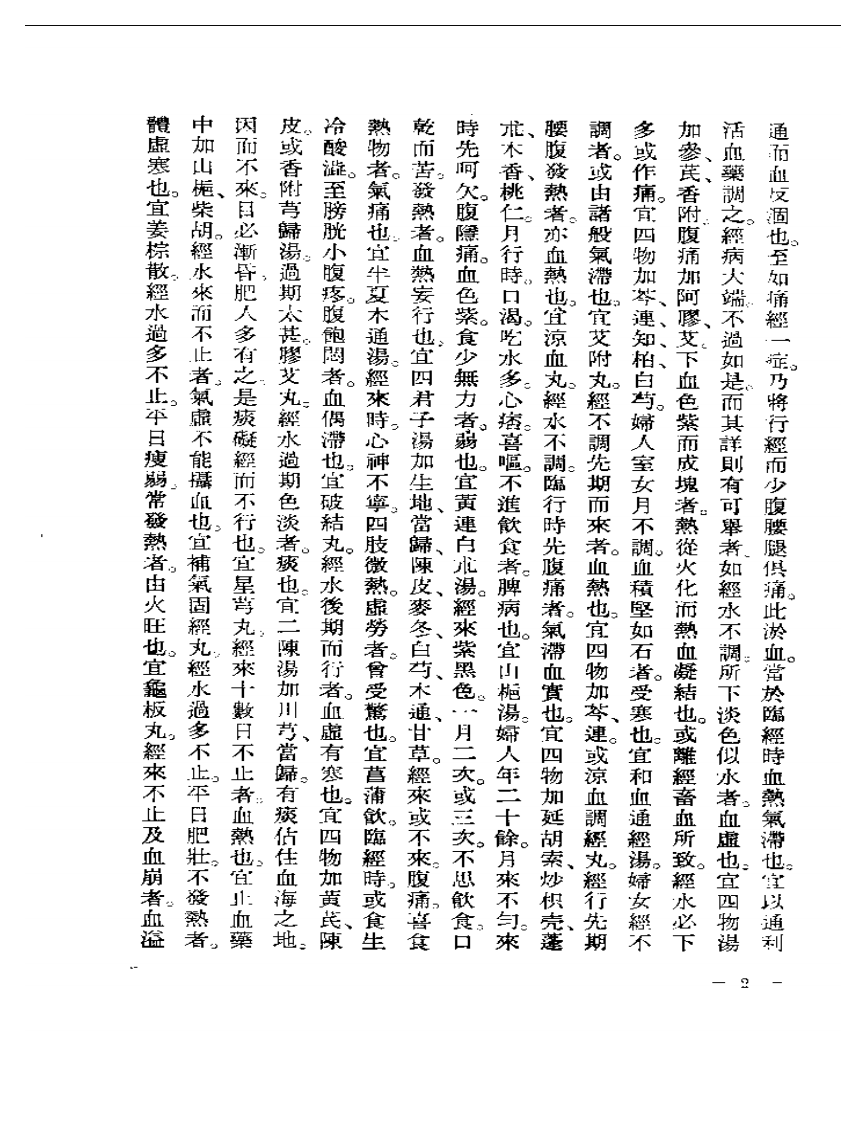 通而血反涸也。至如痛經一症。乃將行經而少腹腰腿俱痛。此淤血。當於臨經時血熱氣滯也。宜以通利
活血藥調之。經病大端。不過如是。而其詳則有可舉者。如經水不調。所下淡色似水者。血虛也。宜四物湯
加參、芪、香附。腹痛加阿膠、艾。下血色紫而成塊者。熱從火化而熱血凝結也。或離經畜血所致。經水必下
多或作痛。宜四物加芩、連、知、柏、白芍。婦人室女月不調。血積堅如石者。受寒也。宜和血通經湯。婦女經不
調者。或由諸般氣滯也。宜艾附丸。經不調先期而來者。血熱也。宜四物加芩、連。或涼血調經丸。經行先期
腰腹發熱者。亦血熱也。宜涼血丸。經水不調。臨行時先腹痛者。氣滯血實也。宜四物加延胡索、炒枳壳、蓬
朮、木香、桃仁。月行時。口渴。吃水多。心痞。喜嘔。不進飲食者。脾病也。宜山梔湯。婦人年二十餘。月來不勻。來
時先呵欠。腹隱痛。血色紫。食少無力者。弱也。宜黃連白朮湯。經來紫黑色。一月二次。或三次。不思飲食。口
乾而苦。發熱者。血熱妄行也。宜四君子湯加生地、當歸、陳皮、麥冬、白芍、木通、甘草。經來或不來。腹痛。喜食
熱物者。氣痛也。宜半夏木通湯。經來時。心神不寧。四肢微熱。虛勞者。曾受驚也。宜菖蒲飲。臨經時。或食生
冷酸澁。至膀胱小腹疼。腹飽悶者。血偶滯也。宜破結丸。經水後期而行者。血虛有寒也。宜四物加黃芪、陳
皮。或香附芎歸湯。過期太甚。膠艾丸。經水過期色淡者。痰也。宜二陳湯加川芎、當歸。有痰佔住血海之地。
因而不來。目必漸昏。肥人多有之。是痰礙經而不行也。宜星芎丸。經來十數日不止者。血熱也。宜止血藥
中加山梔、柴胡。經水來而不止者。氣虛不能攝血也。宜補氣固經丸。經水過多不止。平日肥壯。不發熱者。
體虛寒也。宜姜棕散。經水過多不止。平日瘦弱。常發熱者。由火旺也。宜龜板丸。經來不止及血崩者。血溢
— 2 —